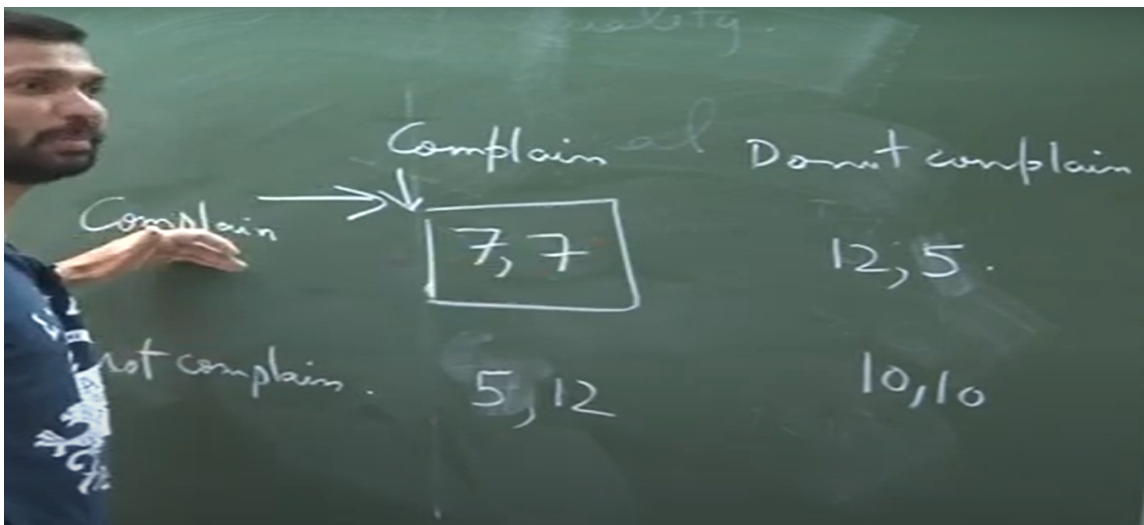 Complain Donot complain
Complain 7, 7 12, 5.
not complain. 5, 12 10, 10